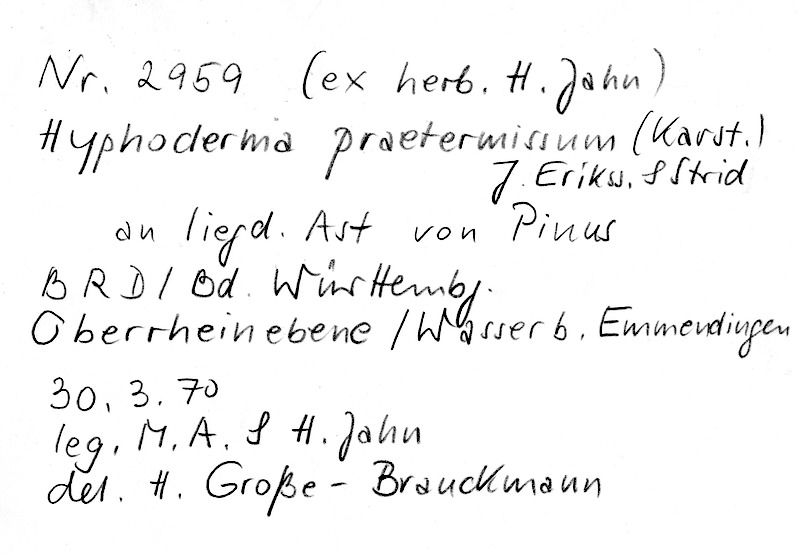 Nr. 2959 (ex herb. H. Jahn)
Hyphoderma praetermissum (Karst.)
J. Erikss. & Strid
an liegd. Ast von Pinus
BRD / Bd. Württembg.
Oberrheinebene / Wasser b. Emmendingen
30. 3. 70
leg. M. A. & H. Jahn
det. H. Große-Brauckmann